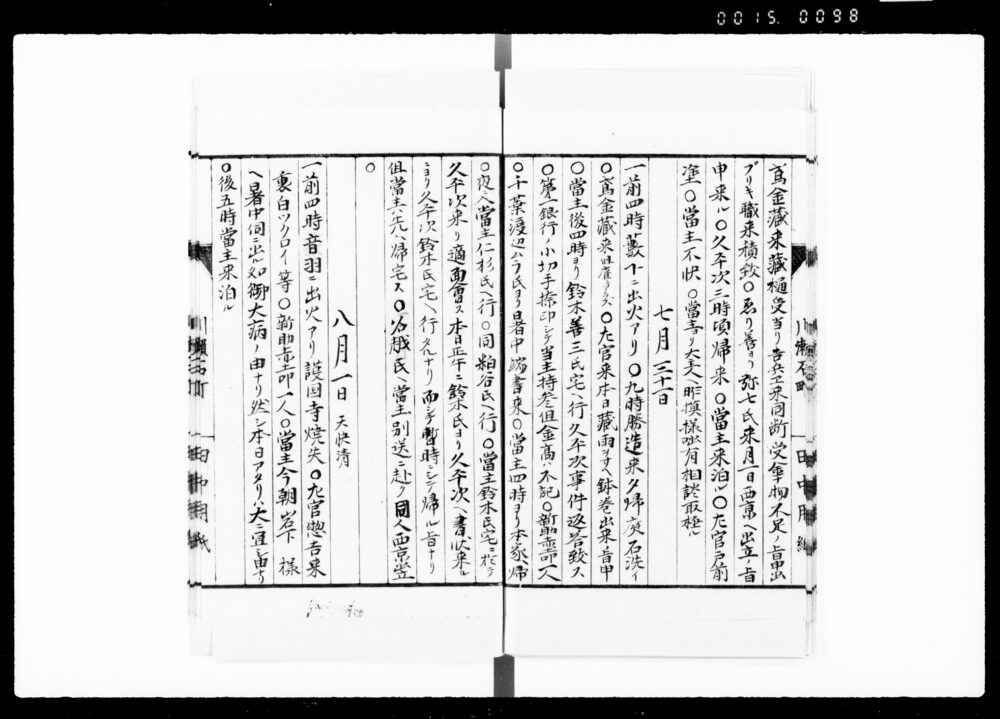 0015. 0098
鳶金藏来藏樋受当り吉兵エ来同断受筆物不足ノ旨申出
ブリキ職来積致〇ゑり善ヨリ弥七氏来月一日西京ヘ出立ノ旨
申来ル〇久平次三時頃帰来〇當主来泊ル〇左官戸前
塗〇當主不快〇當主ヨリ大丈ヘ昨模様咄有相談取極ル
七月三十一日
一前四時叢下ニ出火アリ〇九時勝造来夕帰庭石洗イ
〇鳶金藏来〇左官来本日藏雨ヨケ鉢巻出来ノ旨申
〇當主後四時ヨリ鈴木善三氏宅ヘ行久平次事件返答致ス
〇第一銀行ノ小切手捺印シテ当主持参但金高ハ不記〇新助壱人
〇千葉渡辺ムラ氏ヨリ暑中端書来〇當主四時ヨリ本家ヘ帰
〇夜ヘ當主仁杉氏ヘ行〇同粕谷氏ヘ行〇當主鈴木氏宅ニ於テ
久平次来リ適面會ス本日正午ニ鈴木氏ヨリ久平次ヘ書状来ル
ニヨリ久平次鈴木氏宅ヘ行タルナリ而シテ暫時ニシテ帰ル旨ナリ
但當主ハ先ヘ帰宅ス〇名越氏ヘ當主別送ニ赴ク同人西京登
〇
八月一日 天快清
一前四時音羽ニ出火アリ護国寺焼失〇左官惣吉来
裏白ツクロイ等〇新助壱人〇當主今朝岩下様
ヘ暑中伺ニ出ル如御大病ノ由ナリ然シ本日アタリハ大ニ宜シ由ナリ
〇後五時當主来泊ル
川瀬石町
田中用紙